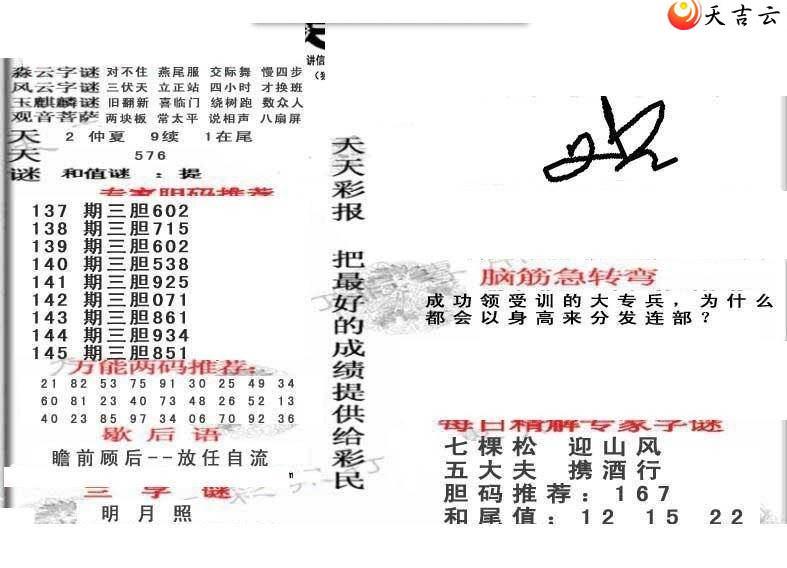 天吉云
讲信
淼云字谜 对不住 燕尾服 交际舞 慢四步
风云字谜 三伏天 立正站 四小时 才换班
玉麒麟谜 旧翻新 喜临门 绕树跑 数众人
观音菩萨 两块板 常太平 说相声 八扇屏
天 2 仲夏 9续 1在尾
天 576
谜 和值谜 : 提
专家胆码推荐
137 期三胆602
138 期三胆715
139 期三胆602
140 期三胆538
141 期三胆925
142 期三胆071
143 期三胆861
144 期三胆934
145 期三胆851
万能两码推荐:
21 82 53 75 91 30 25 49 34
60 81 23 40 73 48 26 52 13
40 23 85 97 34 06 70 92 36
歇后语
瞻前顾后--放任自流
三字谜
明月照
天天彩报 把最好的成绩提供给彩民
脑筋急转弯
成功领受训的大专兵，为什么
都会以身高来分发连部？
每日精解专家字谜
七棵松 迎山风
五大夫 携酒行
胆码推荐: 167
和尾值: 12 15 22